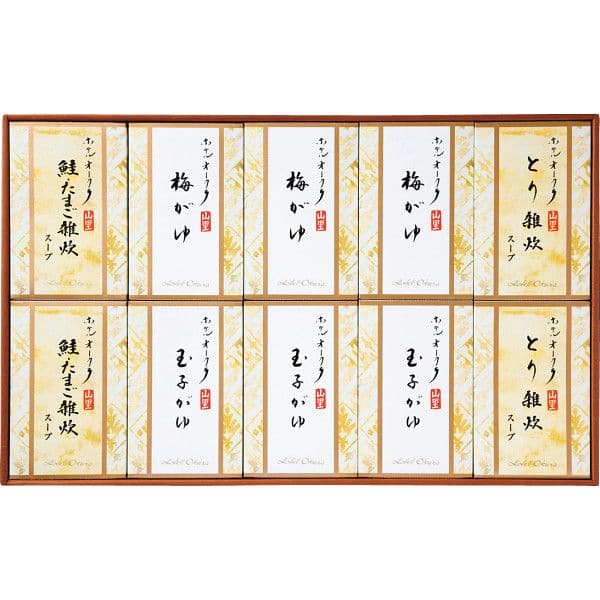 ホテルオークラ
山里
鮭・たまご雑炊
スープ
ホテルオークラ
山里
梅がゆ
Hotel Okura
ホテルオークラ
山里
梅がゆ
Hotel Okura
ホテルオークラ
山里
梅がゆ
Hotel Okura
ホテルオークラ
山里
とり雑炊
スープ
Hotel Okura
ホテルオークラ
山里
鮭・たまご雑炊
スープ
Hotel Okura
ホテルオークラ
山里
玉子がゆ
Hotel Okura
ホテルオークラ
山里
玉子がゆ
Hotel Okura
ホテルオークラ
山里
玉子がゆ
Hotel Okura
ホテルオークラ
山里
とり雑炊
スープ
Hotel Okura